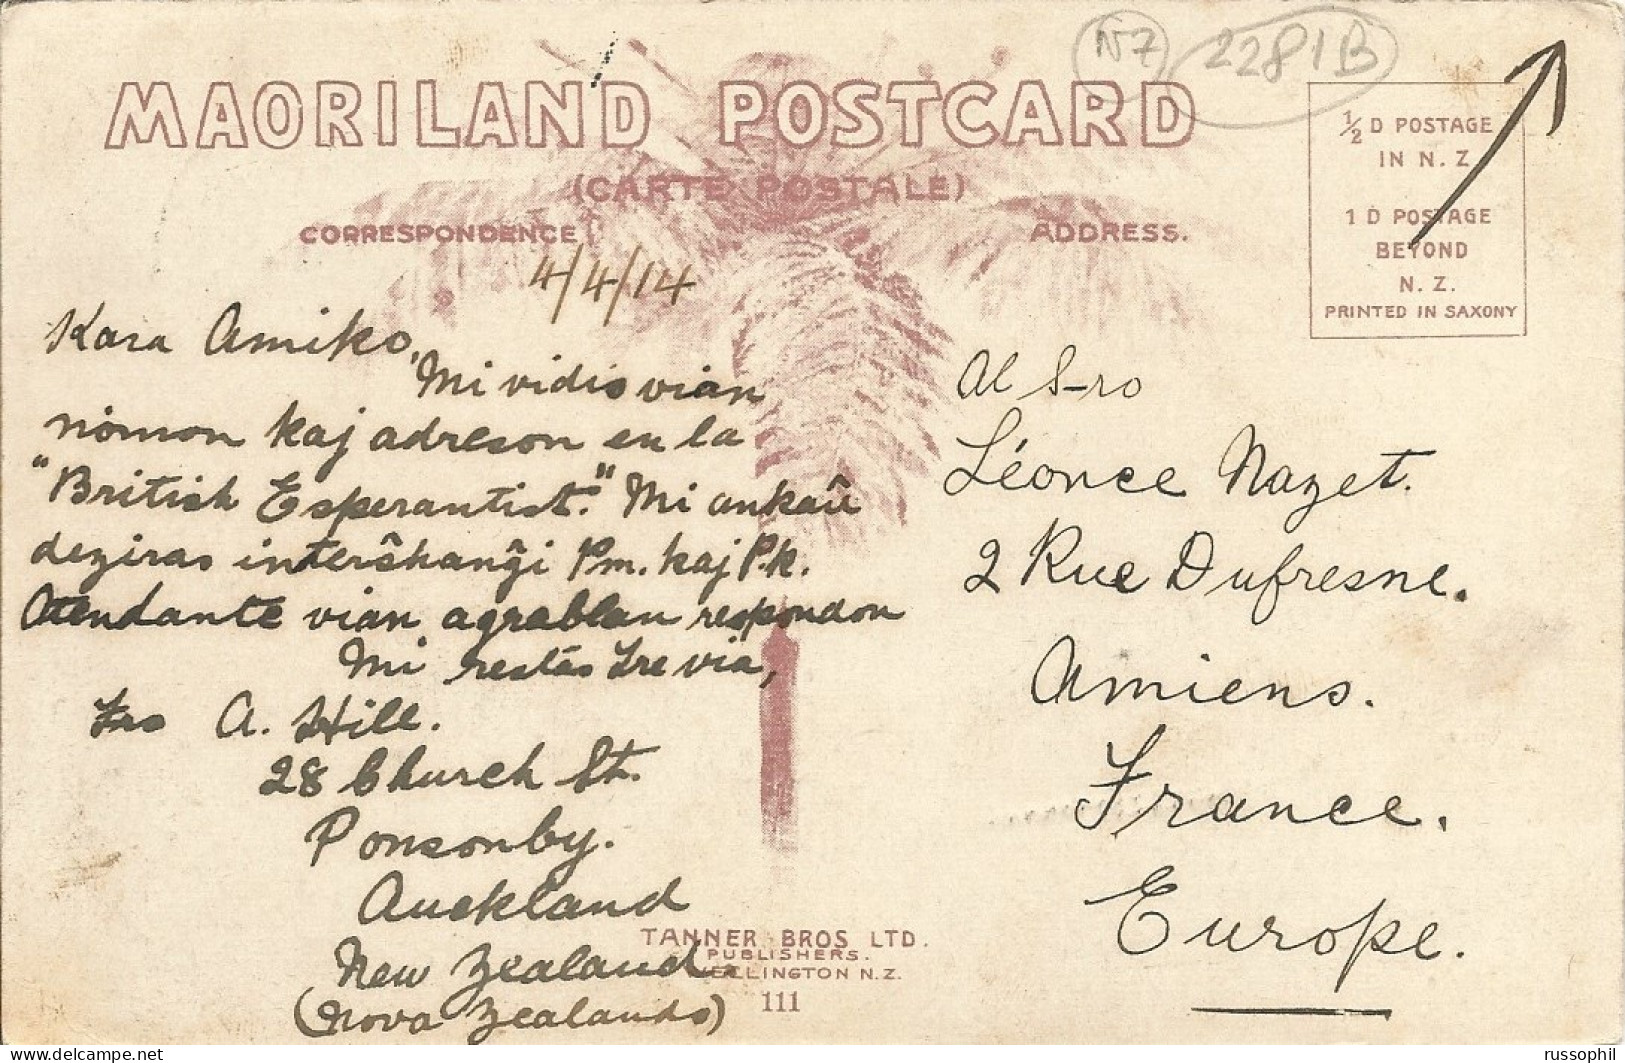 N7 2281B
MAORILAND POSTCARD
(CARTE POSTALE)
CORRESPONDENCE
ADDRESS.
½ D POSTAGE
IN N. Z
1 D POSTAGE
BEYOND
N. Z.
PRINTED IN SAXONY
4/4/14
Kara Amiko,
Mi vidis vian
nomon kaj adreson en la
"British Esperantist." Mi ankaû
deziras interŝhanĝi Pm. kaj P.k.
Atendante vian agrablan respondon
Mi restas tre via,
Fro A. Hill.
28 Church St.
Ponsonby.
Auckland
New Zealand.
(Nova Zealando)
Al S-ro
Léonce Nazet.
2 Rue Dufresne.
Amiens.
France.
Europe.
TANNER BROS LTD.
PUBLISHERS.
WELLINGTON N.Z.
111
www.delcampe.net
russophil